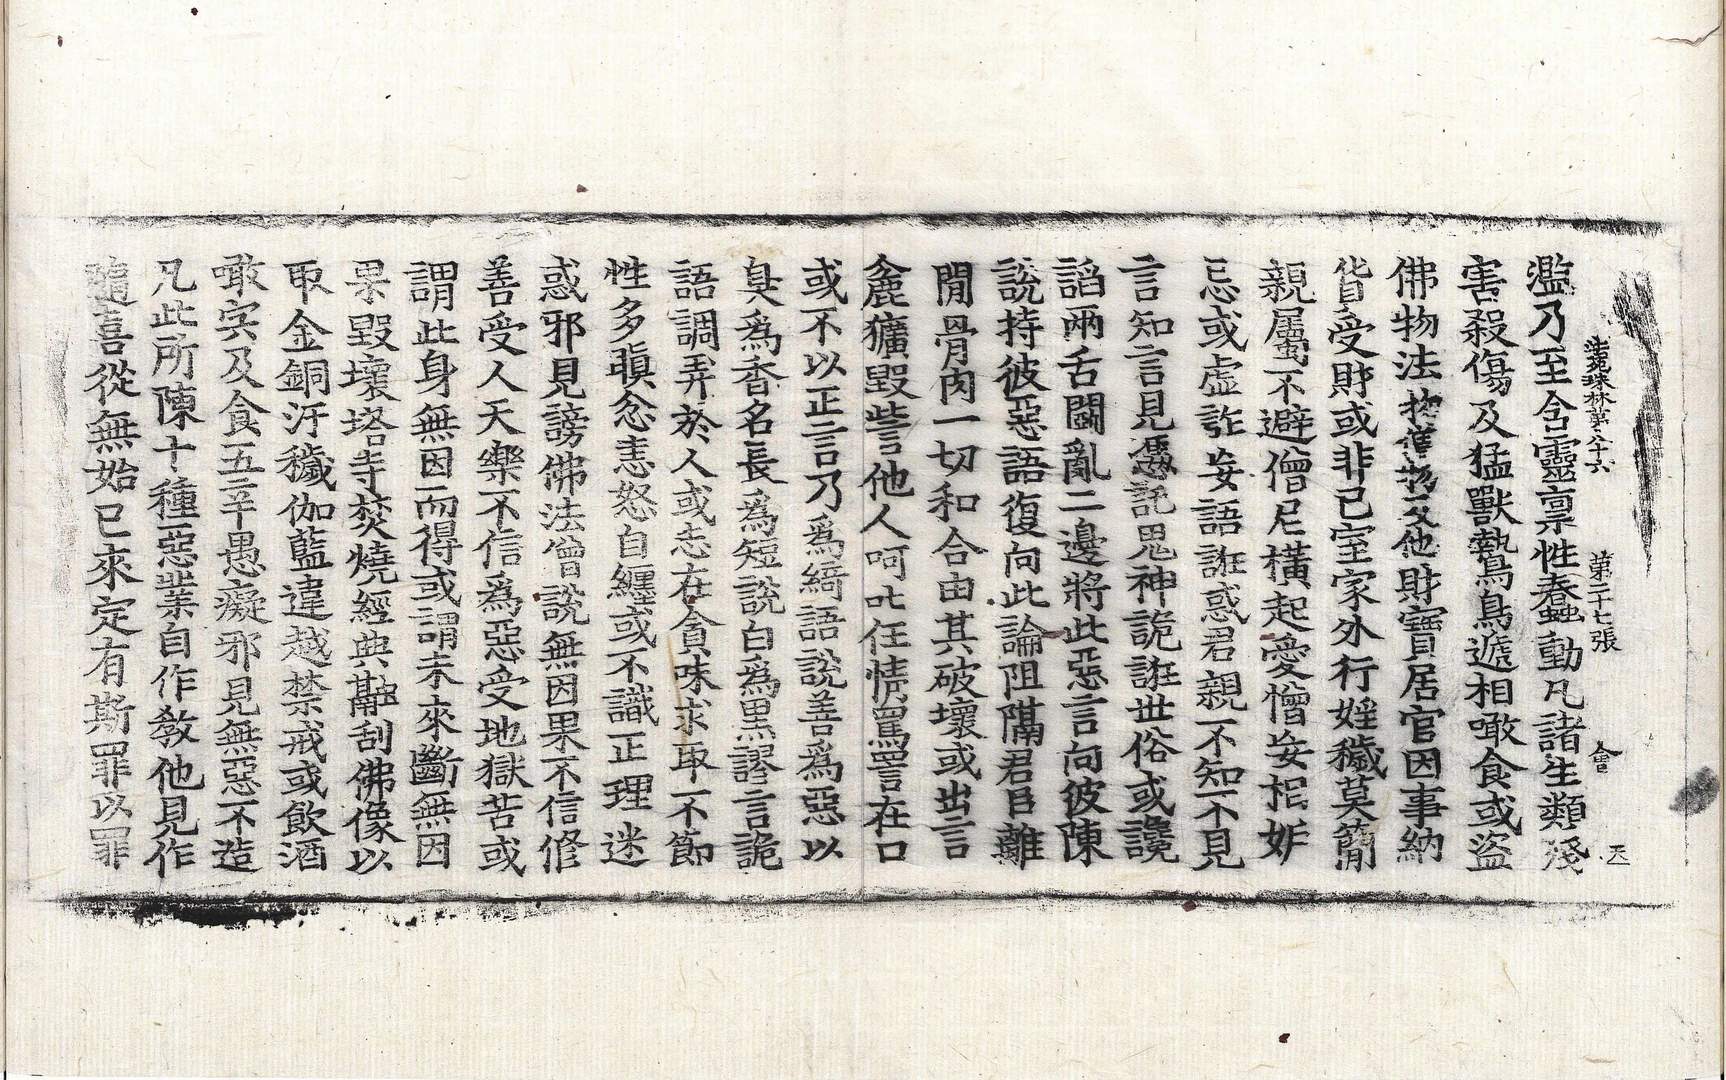 法苑珠林第八十六 第二十七張 會 天
濫乃至含靈禀性蠢動凡諸生類殘
害殺傷及猛獸鷙鳥遞相噉食或盜
佛物法物僧物及他財寶居官因事納
貨受財或非己室家外行婬穢莫簡
親屬不避僧尼橫起愛憎妄相妒
忌或虛詐妄語誑惑君親不知不見
言知言見憑託鬼神詭誑世俗或讒
謟兩舌鬪亂二邊將此惡言向彼陳
說持彼惡語復向此論阻隔君臣離
閒骨肉一切和合由其破壞或出言
麁獷毀呰他人呵叱任情罵詈在口
或不以正言乃爲綺語說善爲惡以
臭爲香名長爲短說白爲黑謬言詭
語調弄於人或志在貪味求取不節
性多瞋忿恚怒自纏或不識正理迷
惑邪見謗佛法僧說無因果不信修
善受人天樂不信爲惡受地獄苦或
謂此身無因而得或謂未來斷無因
果毀壞塔寺焚燒經典融刮佛像以
取金銅汙穢伽藍違越禁戒或飲酒
噉宍及食五辛愚癡邪見無惡不造
凡此所陳十種惡業自作教他見作
隨喜從無始已來定有斯罪以罪